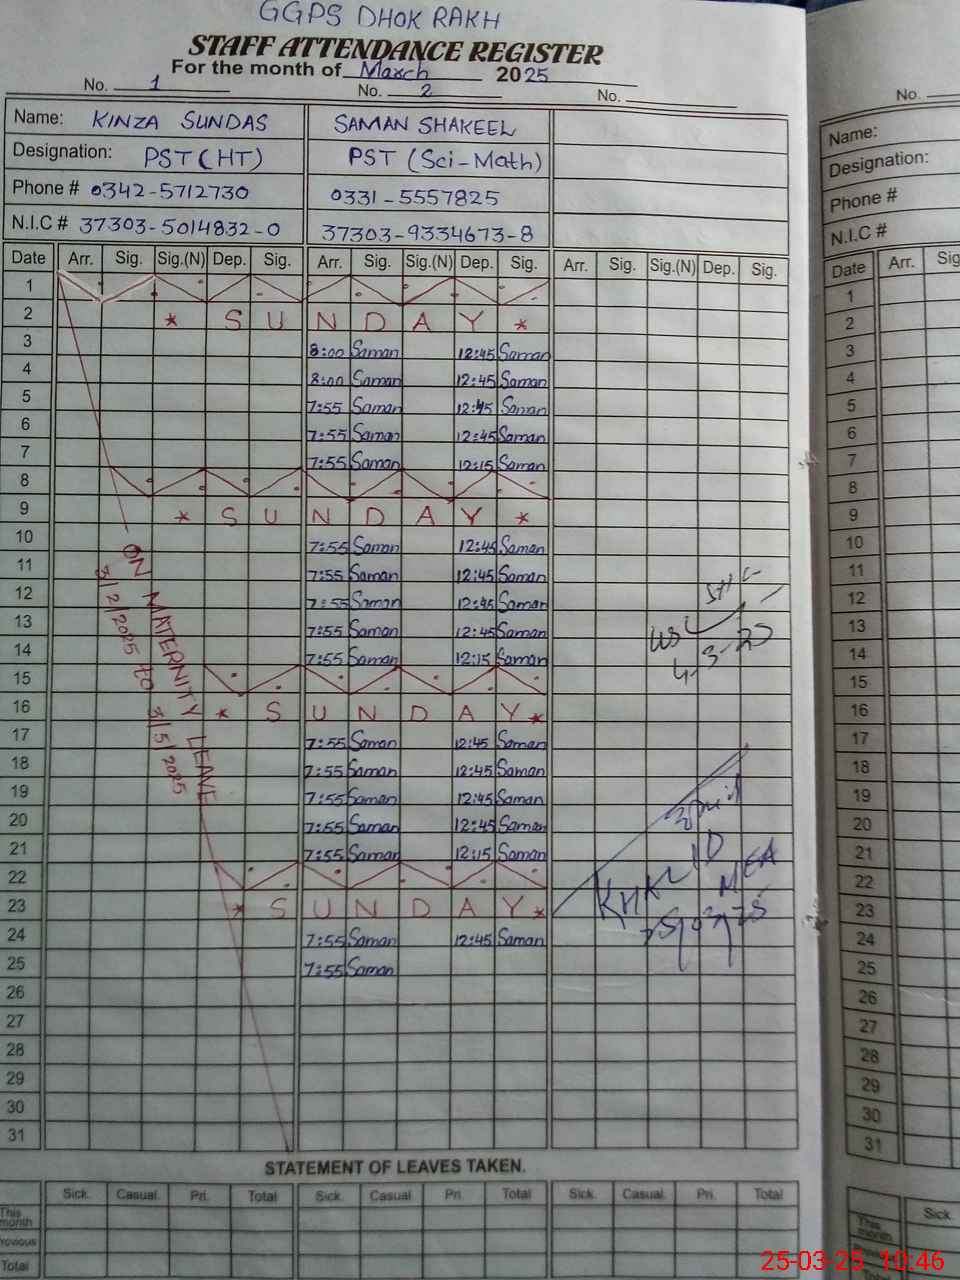 GGPS DHOK RAKH
STAFF ATTENDANCE REGISTER
For the month of March 2025
No. 1 No. 2 No.
Name: KINZA SUNDAS SAMAN SHAKEEL
Designation: PST (HT) PST (Sci-Math)
Phone # 0342-5712730 0331-5557825
N.I.C # 37303-5014832-0 37303-9334673-8
Date Arr. Sig. Sig.(N) Dep. Sig. Arr. Sig. Sig.(N) Dep. Sig. Arr. Sig. Sig.(N) Dep. Sig.
1
2 * SUNDAY *
3 8:00 Saman 12:45 Saman
4 8:00 Saman 12:45 Saman
5 7:55 Saman 12:45 Saman
6 7:55 Saman 12:45 Saman
7 7:55 Saman 12:15 Saman
8
9 * SUNDAY *
10 7:55 Saman 12:45 Saman
11 7:55 Saman 12:45 Saman
12 7:55 Saman 12:45 Saman
13 7:55 Saman 12:45 Saman
14 7:55 Saman 12:15 Saman
15
16 * SUNDAY *
17 7:55 Saman 12:45 Saman
18 7:55 Saman 12:45 Saman
19 7:55 Saman 12:45 Saman
20 7:55 Saman 12:45 Saman
21 7:55 Saman 12:15 Saman
22
23 * SUNDAY *
24 7:55 Saman 12:45 Saman
25 7:55 Saman
26
27
28
29
30
31
ON MATERNITY LEAVE
3/2/2025 to 3/5/2025
4-3-25
KHALID
MEA
25/03/25
STATEMENT OF LEAVES TAKEN.
Sick. Casual. Pri. Total Sick. Casual Pri. Total Sick. Casual. Pri. Total
This month
Previous
Total
No.
Name:
Designation:
Phone #
N.I.C #
Date Arr.
1
2
3
4
5
6
7
8
9
10
11
12
13
14
15
16
17
18
19
20
21
22
23
24
25
26
27
28
29
30
31
Sick.
This month
Total
25-03-25 10:46